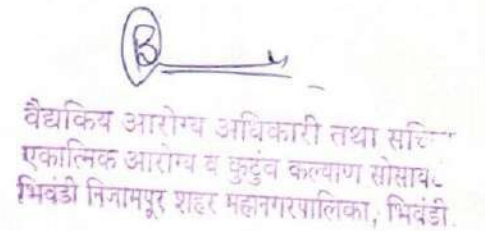 वैद्यकिय आरोग्य अधिकारी तथा
एकात्मिक आरोग्य व कुटुंब कल्याण
भिवंडी निजामपूर शहर महानगरपालिका, भिवंडी.